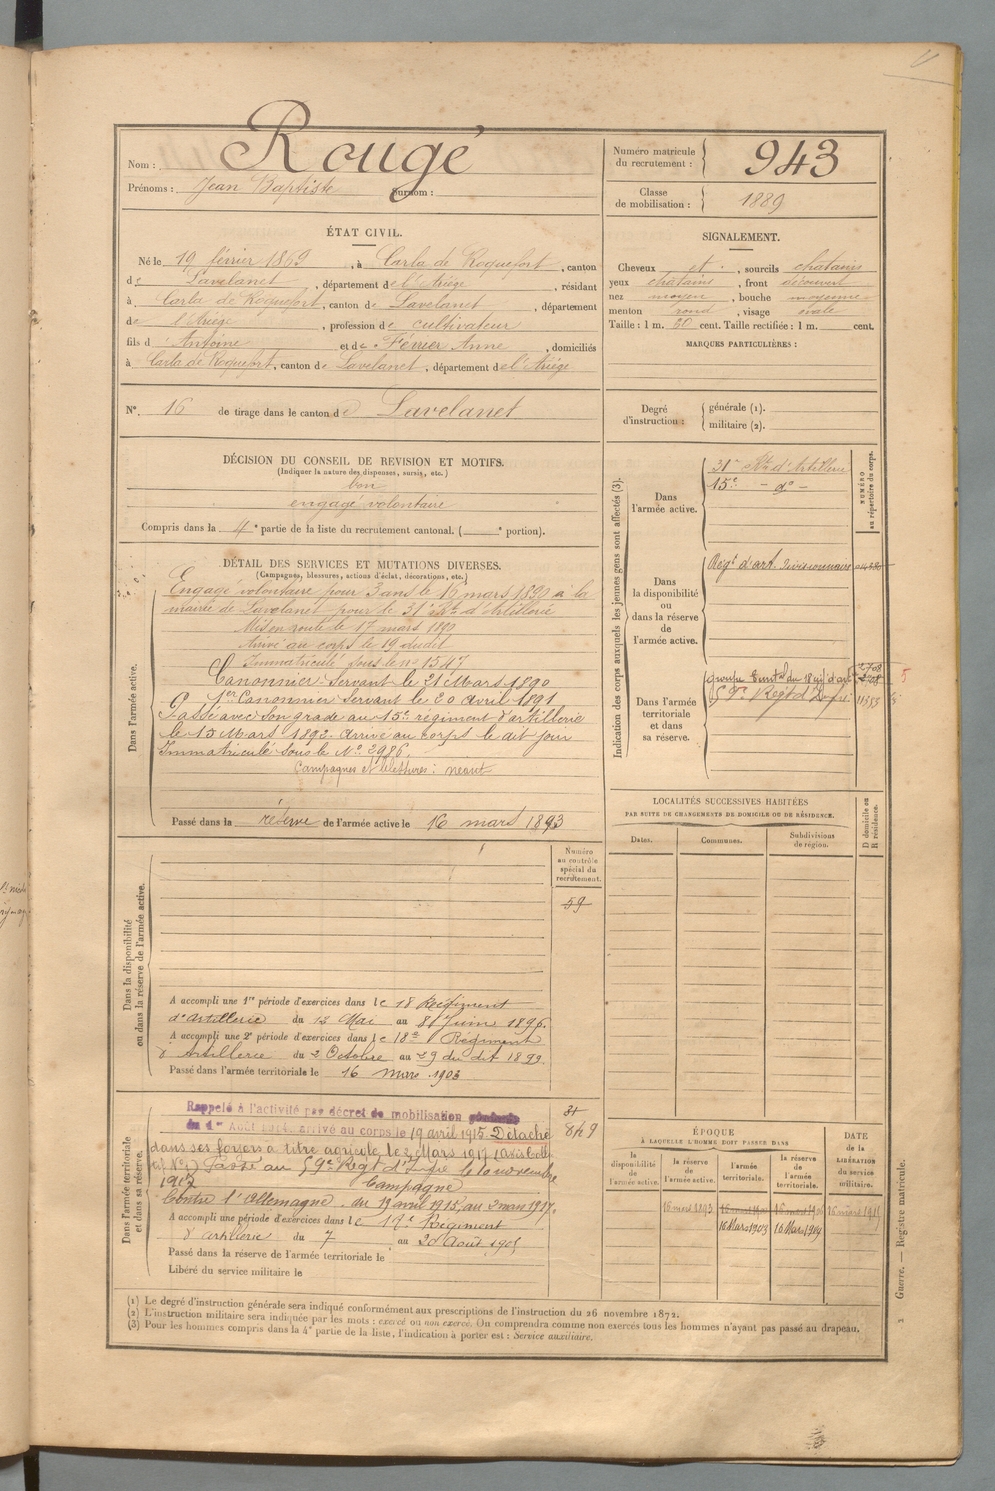 Nom : Rougé
Prénoms : Jean Baptiste Surnom :
Numéro matricule du recrutement : 943
Classe de mobilisation : 1889
ÉTAT CIVIL.
Né le 19 février 1869, à Carla de Roquefort, canton
de Lavelanet, département de l'Ariège, résidant
à Carla de Roquefort, canton de Lavelanet, département
de l'Ariège, profession de cultivateur
fils d'Antoine et de Ferrier Anne, domiciliés
à Carla de Roquefort, canton de Lavelanet, département de l'Ariège
N° 16 de tirage dans le canton de Lavelanet
SIGNALEMENT.
Cheveux et, sourcils châtains
yeux châtains, front découvert
nez moyen, bouche moyenne
menton rond, visage ovale
Taille : 1 m. cent. Taille rectifiée : 1 m. cent.
MARQUES PARTICULIÈRES :
Degré d'instruction : générale (1).
militaire (2).
DÉCISION DU CONSEIL DE REVISION ET MOTIFS.
(Indiquer la nature des dispenses, sursis, etc.)
bon
engagé volontaire
Compris dans la 4e partie de la liste du recrutement cantonal. ( e portion).
DÉTAIL DES SERVICES ET MUTATIONS DIVERSES.
(Campagnes, blessures, actions d'éclat, décorations, etc.)
Dans l'armée active.
Engagé volontaire pour 3 ans le 16 mars 1890 à la
mairie de Lavelanet pour le 31e d'Artillerie
Mis en route le 17 mars 1890
Arrivé au corps le 19 dudit
Immatriculé sous le n° 1547
Canonnier Servant le 21 Mars 1890
1er Canonnier Servant le 20 Avril 1891
Passé avec son grade au 15e régiment d'artillerie
le 13 Mars 1892. Arrivé au corps le dit jour
Immatriculé sous le N° 2986.
Campagnes et blessures : néant
Passé dans la réserve de l'armée active le 16 mars 1893
Indication des corps auxquels les jeunes gens sont affectés (3).
NUMÉRO au répertoire du corps.
Dans l'armée active.
31e d'Artillerie
15e - do -
Dans la disponibilité ou dans la réserve de l'armée active.
Régt d'art. divisionnaire
Dans l'armée territoriale et dans sa réserve.
groupe territ du 18 d'art
59e Regt d'Infie
LOCALITÉS SUCCESSIVES HABITÉES
PAR SUITE DE CHANGEMENTS DE DOMICILE OU DE RÉSIDENCE.
Dates. Communes. Subdivisions de région. D domicile ou R résidence.
Dans la disponibilité ou dans la réserve de l'armée active.
Numéro au contrôle spécial du recrutement.
59
A accompli une 1re période d'exercices dans le 18 Régiment
d'Artillerie du 12 Mai au 8 Juin 1896.
A accompli une 2e période d'exercices dans le 18e Régiment
d'Artillerie du 2 Octobre au 29 du dit 1899.
Passé dans l'armée territoriale le 16 mars 1903
Dans l'armée territoriale et dans sa réserve.
Rappelé à l'activité par décret de mobilisation générale
du 1er Août 1914, arrivé au corps le 19 avril 1915. Détaché
dans ses foyers à titre agricole le 2 Mars 1917
Passé au 59e Regt d'Infie le 10 novembre
1917 Campagne
Contre l'Allemagne du 19 avril 1915, au 2 mars 1917.
849
A accompli une période d'exercices dans le 18e Régiment
d'artillerie du 7 au 20 Août
Passé dans la réserve de l'armée territoriale le
Libéré du service militaire le
ÉPOQUE
À LAQUELLE L'HOMME DOIT PASSER DANS
la disponibilité de l'armée active.
la réserve de l'armée active.
l'armée territoriale.
la réserve de l'armée territoriale.
DATE de la LIBÉRATION du service militaire.
16 mars 1893
16 Mars 1903 16 Mars 1909
(1) Le degré d'instruction générale sera indiqué conformément aux prescriptions de l'instruction du 26 novembre 1872.
(2) L'instruction militaire sera indiquée par les mots : exercé ou non exercé. On comprendra comme non exercés tous les hommes n'ayant pas passé au drapeau.
(3) Pour les hommes compris dans la 4e partie de la liste, l'indication à porter est : Service auxiliaire.
Guerre. — Registre matricule.